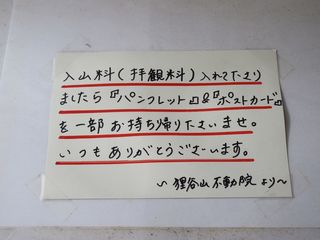 入山料(拝観料)入れて下さり
ましたら『パンフレット』&『ポストカード』
を一部お持ち帰り下さいませ。
いつもありがとうございます。
〜狸谷山不動院より〜